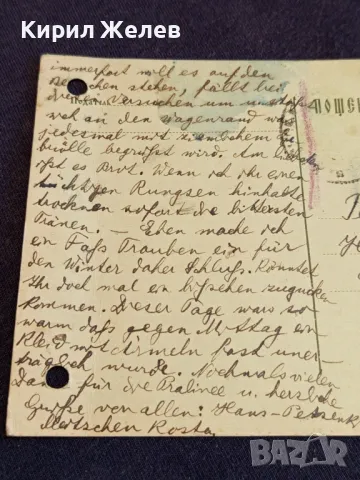 Кирил Желев
immerfort will es auf den
stehen, fällt bei
Податель
diesen Versuchen um u. stößt
weh an den Wagenrand wo
jedesmal mit
begrüßt wird. Am liebsten
ißt es Brot. Wenn ich ihr einen
tüchtigen Rungsen hinhalte
trocknen sofort die bittersten
Tränen. — Eben mache ich
ein Faß Trauben ein für
den Winter daher Schluß. Könntet
Ihr doch mal ein bißchen zugucken
kommen. Dieser Tage war es so
warm daß gegen Mittag ein
Kleid mit Ärmeln fast uner-
träglich wurde. Nochmals vielen
Dank für die Pralinee u. herzliche
Grüße von allen: Hans-
Kosta,
ПОЩЕН
BAZAR